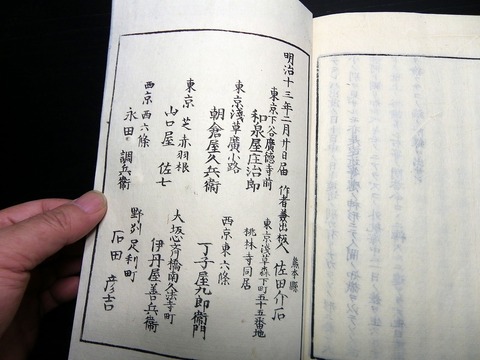 明治十三年二月廿日届
熊本縣
作者兼出板人 佐田介石
東京淺草森下町五十五番地
桃林寺同居
東京下谷廣德寺前
和泉屋庄治郎
東京淺草廣小路
朝倉屋久兵衞
東京芝赤羽根
山口屋佐七
西京西六條
永田調兵衞
西京東六條
丁子屋九郎衞門
大坂心斉橋南久法寺町
伊丹屋善兵衞
野刕足利町
石田彦吉